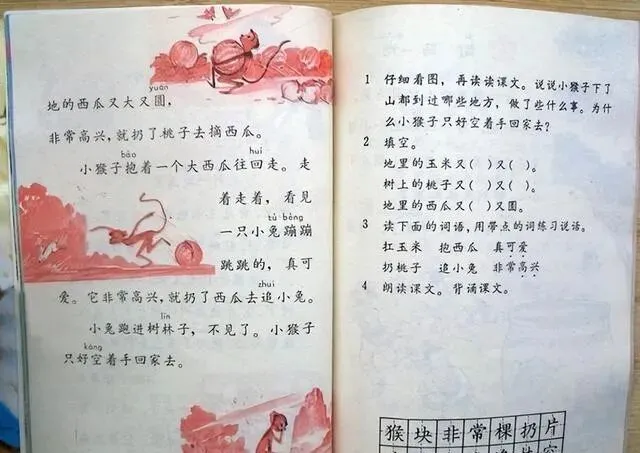 yuán
地的西瓜又大又圆,
非常高兴,就扔了桃子去摘西瓜。
bāo huí
小猴子抱着一个大西瓜往回走。走
着走着,看见
tù bèng
一只小兔蹦蹦
跳跳的,真可
zhuī
爱。它非常高兴,就扔了西瓜去追小兔。
lín
小兔跑进树林子,不见了。小猴子
kōng
只好空着手回家去。
1 仔细看图,再读读课文。说说小猴子下了
山都到过哪些地方,做了些什么事。为什
么小猴子只好空着手回家去?
2 填空。
地里的玉米又( )又( )。
树上的桃子又( )又( )。
地里的西瓜又( )又圆。
3 读下面的词语,用带点的词练习说话。
扛玉米 抱西瓜 真可爱
扔桃子 追小兔 非常高兴
4 朗读课文。背诵课文。
猴块非常棵扔片